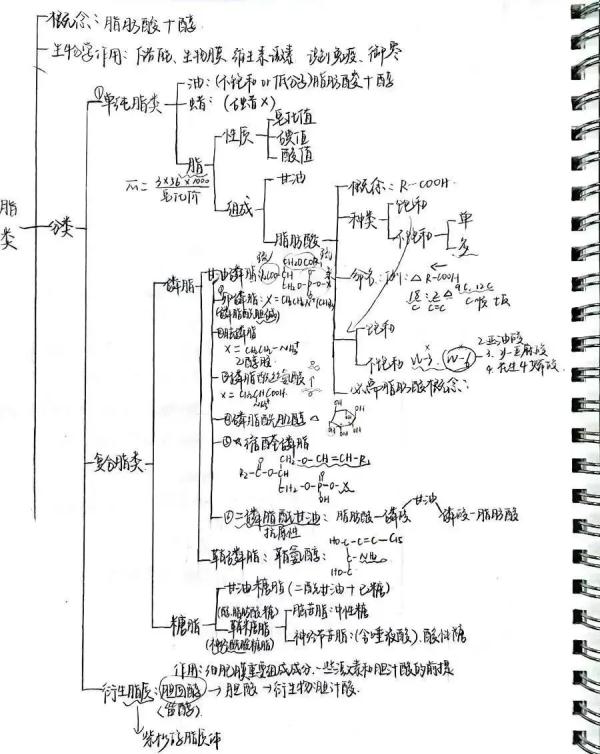 脂类
概念：脂肪酸+醇
生物学作用：储能、生物膜、维生素激素 识别免疫、御寒
分类
①单纯脂类
油：(不饱和 or 低分子)脂肪酸+醇
蜡：(石蜡×)
脂
性质
皂化值
碘值
酸值
M = 3×56×1000 / 皂化价
组成
甘油
脂肪酸
概念：R-COOH
种类
饱和
不饱和
单
多
命名：例：△ R-COOH
饱和
不饱和 W-3 W-6
2.亚油酸
4.花生四烯酸
必需脂肪酸概念：
复合脂类
磷脂
甘油磷脂
CH₂OCOR
卵磷脂：X=
(磷脂酰胆碱)
脑磷脂
X=CH₂CH₂-NH₃⁺
乙醇胺
磷脂酰丝氨酸
磷脂酰肌醇 △
缩醛磷脂
CH₂-O-CH=CH-R
R₂-C-O-CH
CH₂-O-P-O-X
OH
二磷脂酰甘油：脂肪酸-磷酸 甘油 磷酸-脂肪酸
抗原性
鞘磷脂：鞘氨醇：
糖脂
甘油糖脂(二酰甘油+已糖)
鞘糖脂
脑苷脂：中性糖
神经节苷脂：(含唾液酸)、酸性糖
衍生脂质：胆固醇 → 胆酸 → 衍生物胆汁酸。
(甾醇)
作用：细胞膜重要组成成分、一些激素和胆汁酸的前提